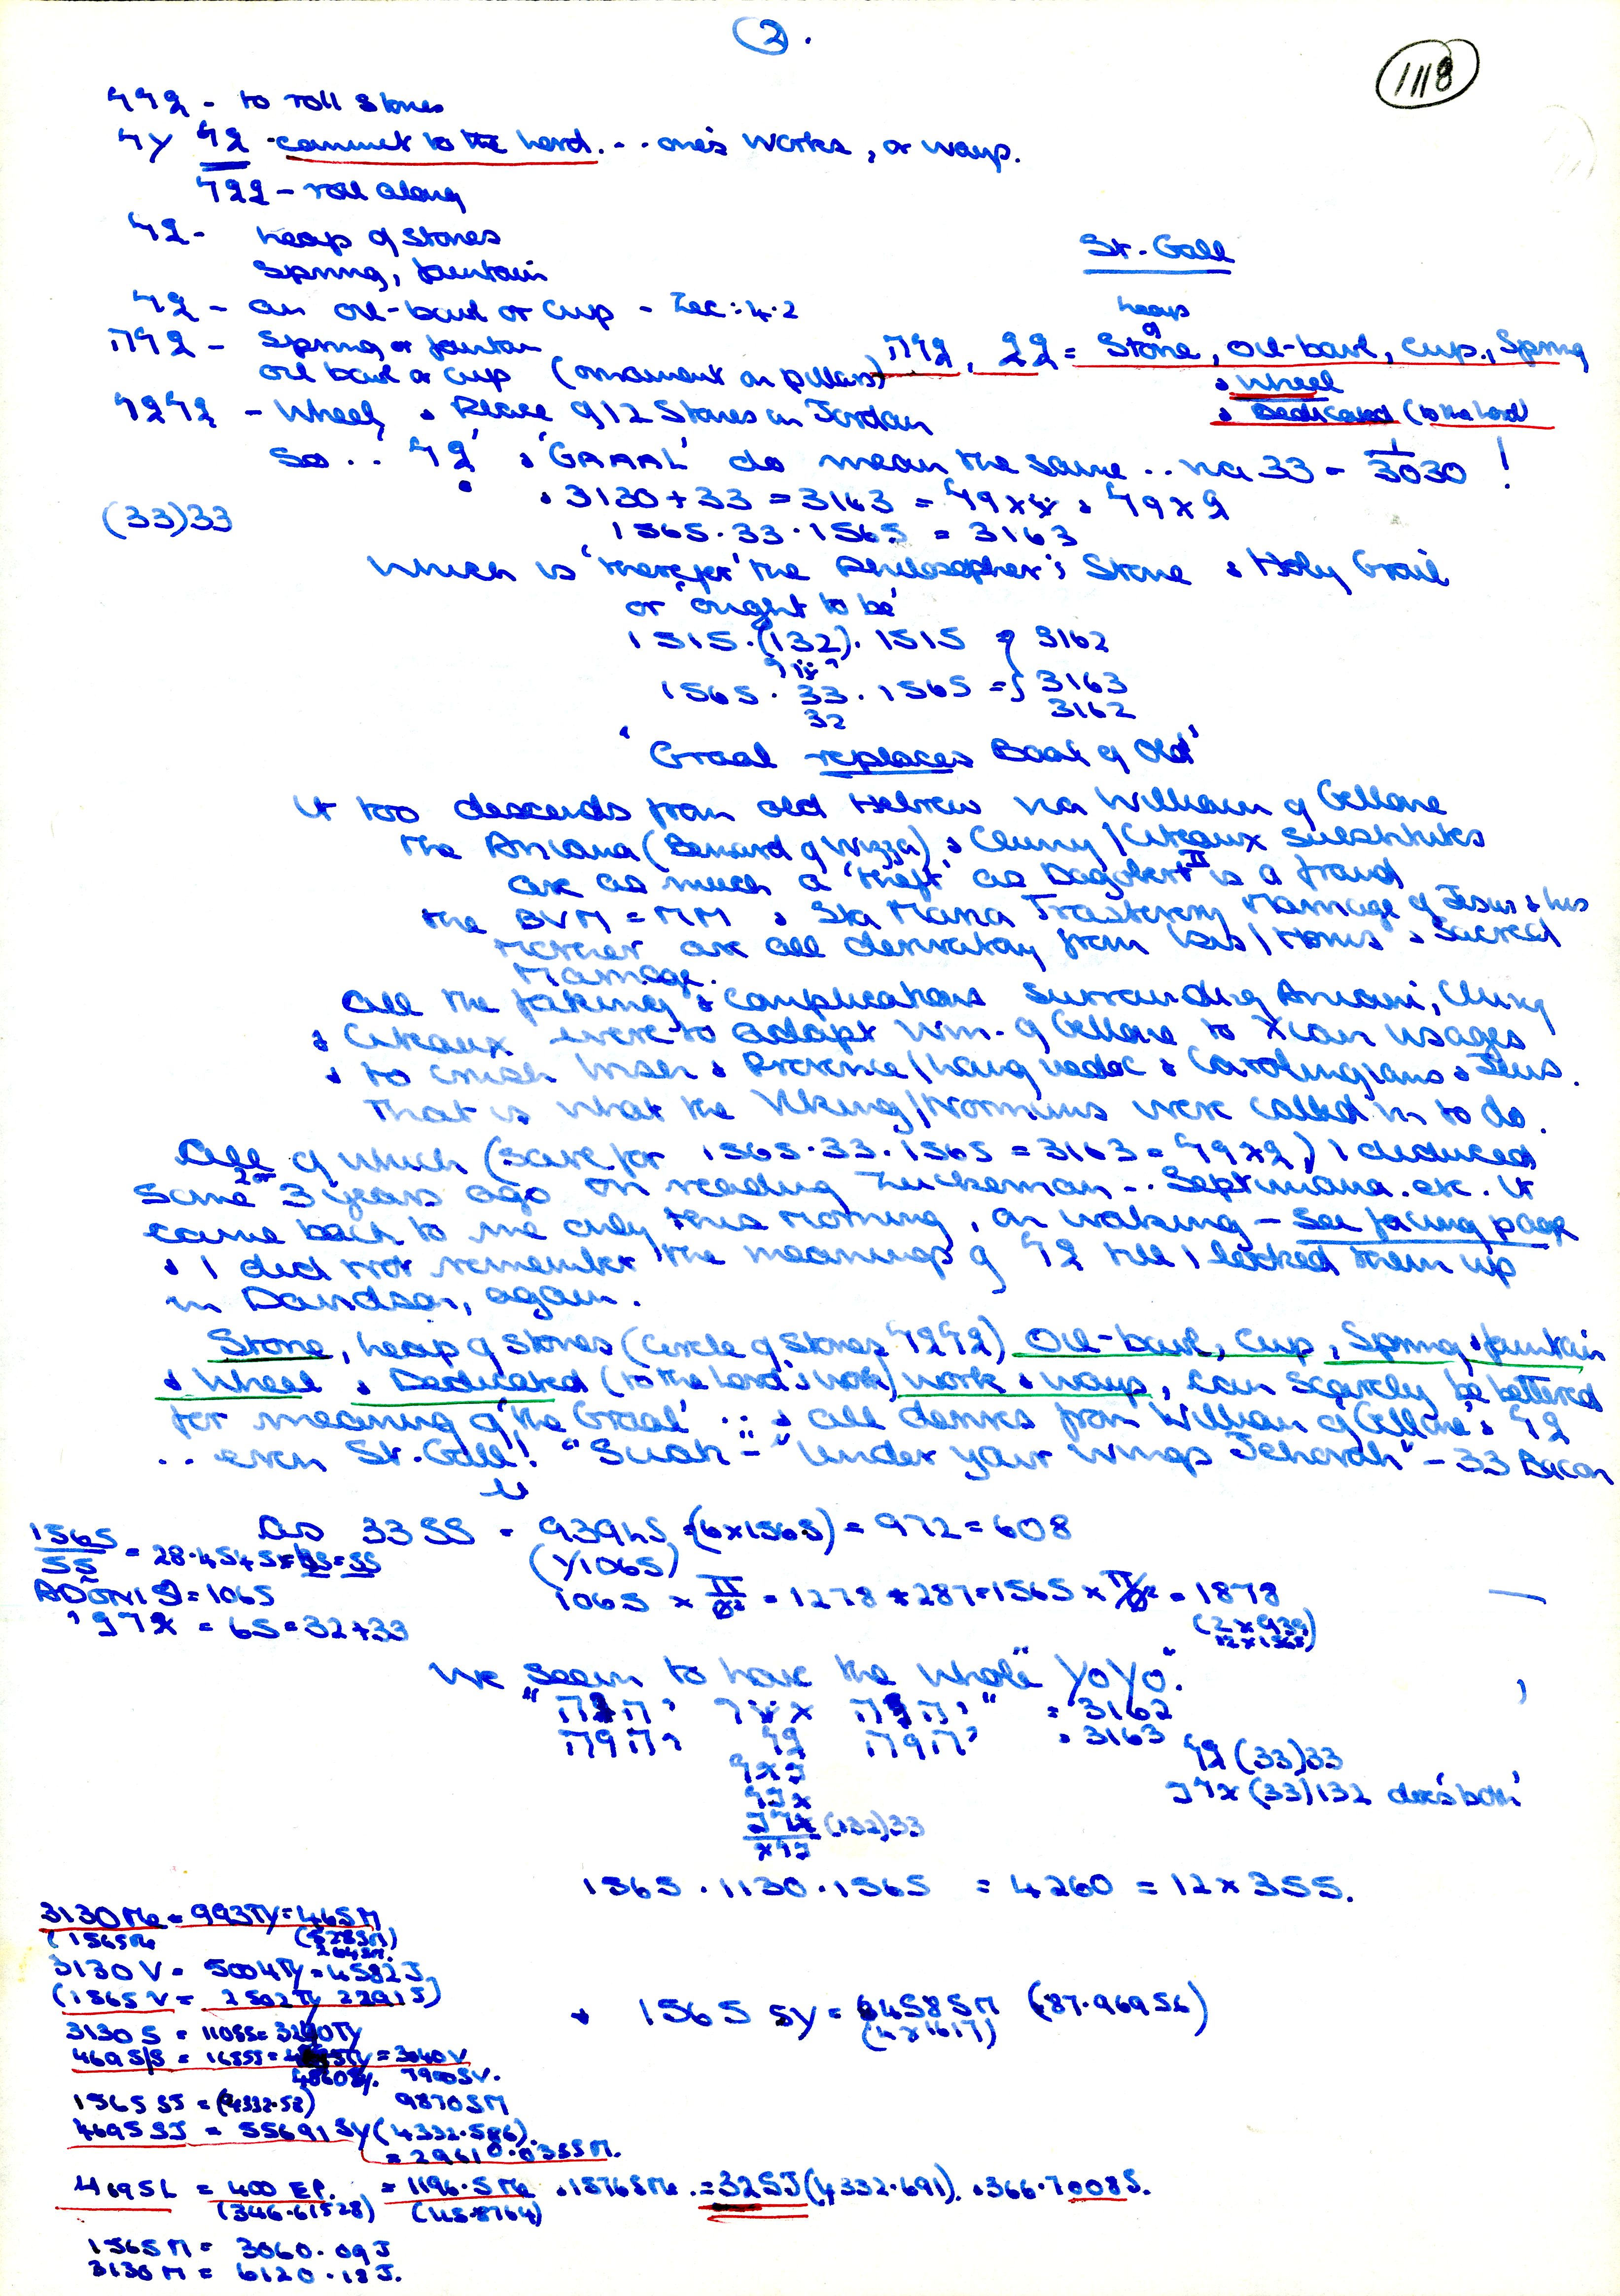 2.
1118
גלל - to roll stones
גל על - commit to the Lord... one's works, or ways.
גגל - roll along
גל - heap of stones
Spring, fountain
St. Gall
גל - an oil-bowl or cup - Zec: 4.2
heap
of
גלה - Spring or fountain
גלה, גג = Stone, oil-bowl, cup, Spring
oil bowl or cup (ornament on pillars)
& Wheel
גלגל - Wheel, & Place of 12 Stones in Jordan
& Dedicated (to the Lord)
So.. 'גל' & 'GRAAL' do mean the same.. via 33 - 3030 !
& 3130 + 33 = 3163
(33)33
1565.33.1565 = 3163
Which is 'therefor' the Philosopher's Stone & Holy Grail
or 'ought to be'
1515.(132).1515 = 3162
1565.33.1565 = 3163
32 3162
'Graal replaces Book of Old'
It too descends from old Hebrew via William of Gellone
The Aniana (Bernard of Wizza), & Cluny/Citeaux substitutes
are as much a 'theft' as Dagobert II is a fraud
the BVM = MM & Sta Maria Trastevery Marriage of Jesus & his
Mother are all derivatory from Isis/Horus & Sacred
Marriage.
All the faking & complications surrounding Aniani, Cluny
& Citeaux were to adapt Wm. of Gellone to Xian usages
& to crush Irish & Provence/Languedoc & Carolingians & Jews.
That is what the Viking/Normans were called in to do.
All of which (save for 1565.33.1565 = 3163) I deduced
some 2 or 3 years ago on reading Zuckerman.. Septimania. etc. It
came back to me only this morning, on waking - see facing page
& I did not remember the meanings of גל till I looked them up
in Davidson, again.
Stone, heap of stones (Circle of Stones גלגל) Oil-bowl, Cup, Spring & fountain
& Wheel & Dedicated (to the Lord's work) work & ways, can scarcely be bettered
for meaning of 'the Graal' .. & all derives from William of Gellone & גל
.. even St. Gall! "Suah" = "Under your wings Jehovah" - 33 Bacon
As 33SS - 939hS (6x156.5) = 972 = 608
1565/55 = 28.4545
(Y1065)
ADONIS = 1065
1065 x π/Ø² = 1278 + 287 = 1565 x π/Ø² = 1878
= 65 = 32+33
(2 x 939)
12 x 156.5
We seem to have the whole "YoYo".
= 3162
& 3163
גל (33)33
(33)132 does 'both'
(132)33
1565.1130.1565 = 4260 = 12 x 355.
3130 Me = 993TY = 465M
(1565Me (528SM)
264SM.
3130 V = 5004TY = 4582J
(1565 V = 2502TY 2291J)
& 1565 SY = 6458SM (87.969SL)
(4 x 1617)
3130 S = 110SS = 3240TY
469 S/S = 165SS = 3040V
4860SY. 7900SV.
1565 SJ = (4332.58) 9870SM
4695 SJ = 55691SY (4332.586).
= 29610.035SM.
4695L = 400 EP. = 1196.5Me & 1576SMe. = 32SJ (4332.691). & 366.7008S.
(346.61528) (115.8764)
1565M = 3060.09J
3130M = 6120.18J.